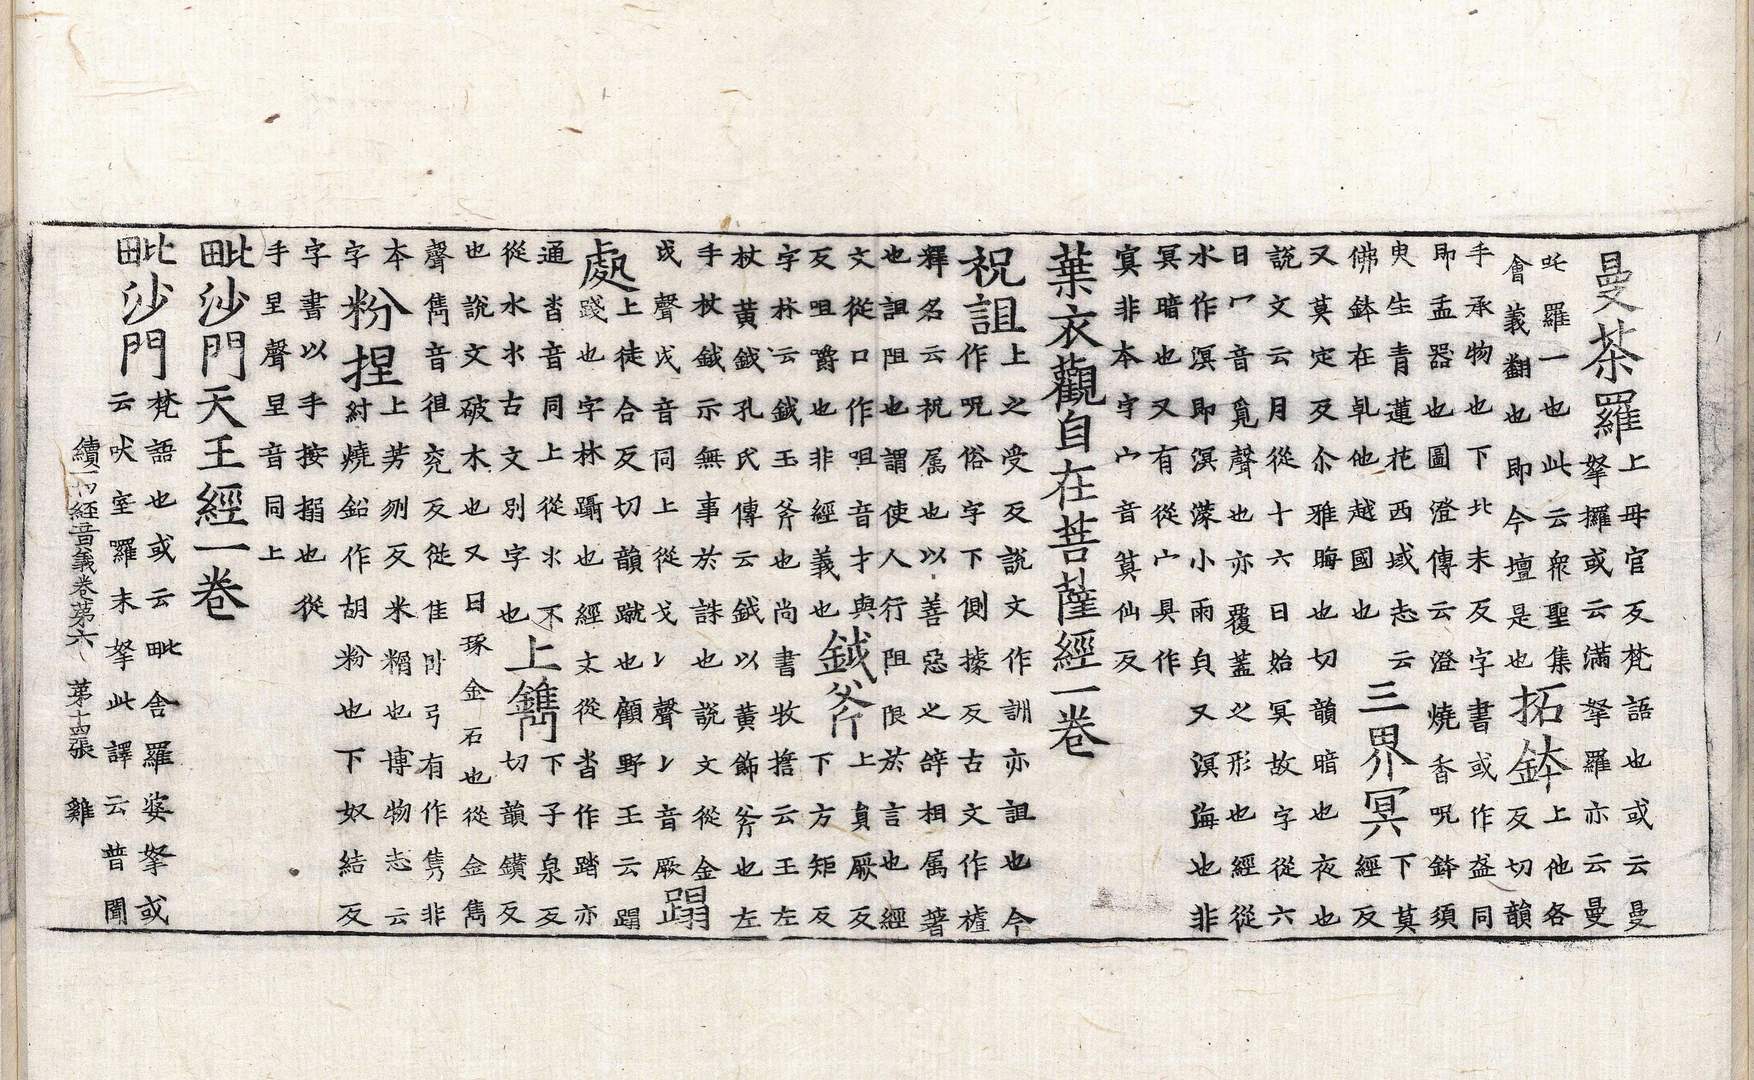 曼荼羅
上毋官反梵語也或云曼
拏攞或云滿拏羅亦云曼
吒羅一也此云眾聖集
會義翻也即今壇是也
拓鉢
上他各
反切韻
手承物也下北末反字書或作盋同
即盂器也圖澄傳云澄燒香呪鉢須
臾生青蓮花西域志云
佛鉢在乹他越國也
三界冥
下莫
經反
又莫定反尒雅晦也切韻暗也夜也
說文云月從十六日始冥故字從六
日冖音覓聲也亦覆蓋之形也經從
水作溟即溟濛小雨皃又溟海也非
冥暗也又有從宀具作
寘非本字宀音莫仙反
葉衣觀自在菩薩經一卷
祝詛
上之受反說文作詶亦詛也今
作呪俗字下側據反古文作樝
釋名云祝属也以善惡之辝相属著
也詛阻也謂使人行阻限於言也經
文從口作咀音才與
反咀嚼也非經義也
鉞斧
上員厥反
下方矩反
字林云鉞玉斧也尚書牧擔云王左
杖黃鉞孔氏傳云鉞以黃飾斧也左
手杖鉞示無事於誅也說文從金
戉聲戉音同上從戈𠄌聲𠄌音厥
蹋
處
上徒合反切韻蹴也顧野王云蹋
踐也字林躡也經文從沓作踏亦
通沓音同上從水不
從水水古文別字也
上鐫
下子泉反
切韻鑚反
也說文破木也又曰琢金石也從金雋
聲雋音徂兖反從隹卧弓有作隽非
本
字
粉捏
上芳刎反米糏也博物志云
紂燒鉛作胡粉也下奴結反
字書以手按搦也從
手呈聲呈音同上
毗沙門天王經一卷
毗沙門
梵語也或云毗舍羅婆拏或
云吠室囉末拏此譯云普聞
續一切經音義卷第六 第十四張 雞